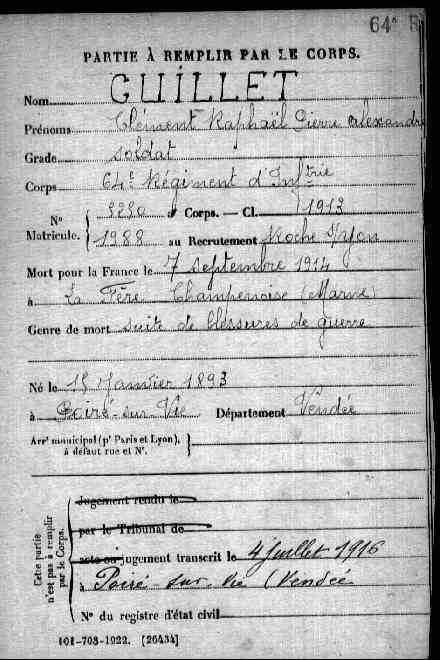 64e R
PARTIE À REMPLIR PAR LE CORPS.
Nom GUILLET
Prénoms Clément Raphaël Pierre Alexandre
Grade soldat
Corps 64e Régiment d'Infrie
N° Matricule. { 5250 au Corps. — Cl. 1913
1988 au Recrutement Roche s/Yon
Mort pour la France le 7 septembre 1914
à La Fère Champenoise (Marne)
Genre de mort suite de bléssures de guerre
Né le 15 Janvier 1893
à Poiré-sur-Vie Département Vendée
Arrt municipal (pr Paris et Lyon), à défaut rue et N°.
Cette partie n'est pas à remplir par le Corps.
Jugement rendu le
par le Tribunal de
acte ou jugement transcrit le 4 juillet 1916
à Poiré-sur-Vie (Vendée
N° du registre d'état civil
101-708-1922. [26434]